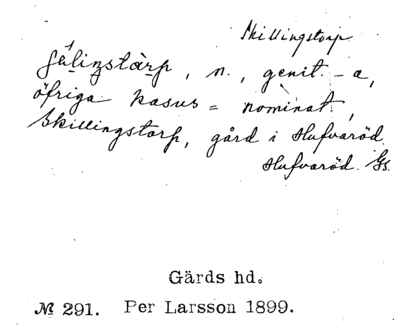 Skillingstorp
fâlingstàrp, n., genit. -a,
öfriga kasus = nominat.,
Skillingstorp, gård i Hufvaröd
Hufvaröd. Gs.
Gärds hd.
№ 291. Per Larsson 1899.